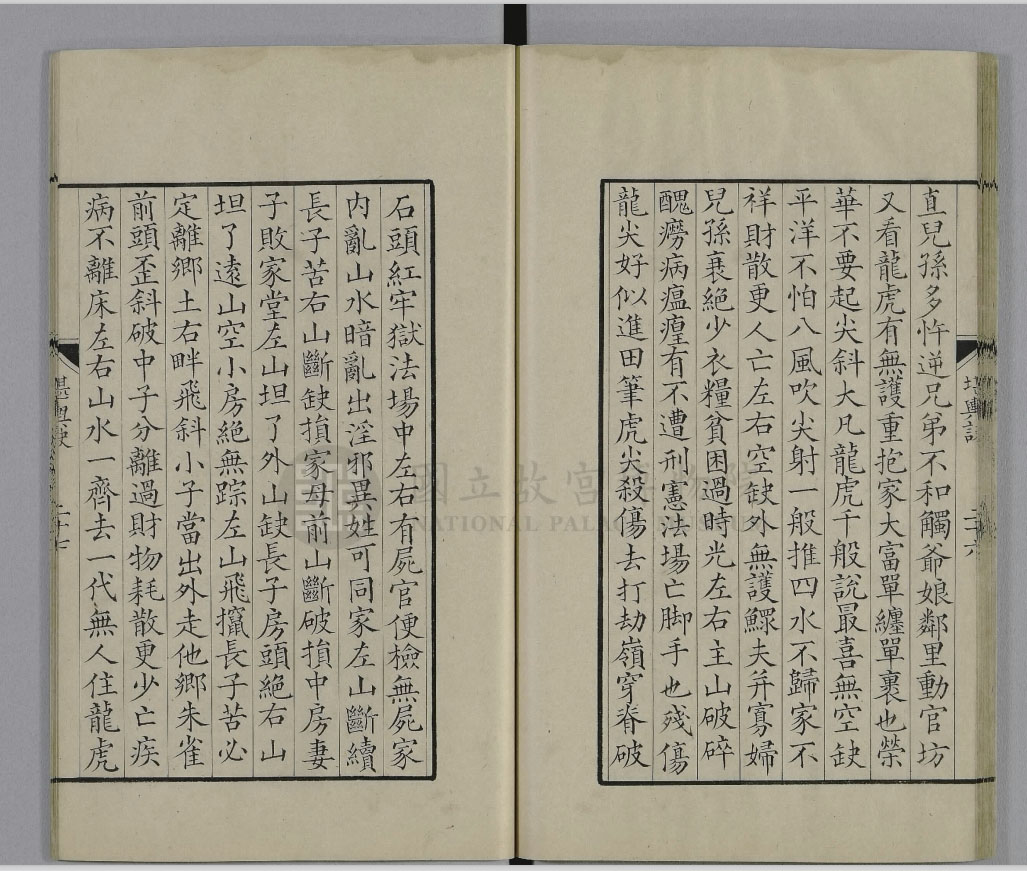 直兒孫多忤逆兄弟不和觸爺娘鄰里動官坊
又看龍虎有無護重抱家大富單纏單裹也榮
華不要起尖斜大凡龍虎千般說最喜無空缺
平洋不怕八風吹尖射一般推四水不歸家不
祥財散更人亡左右空缺外無護鰥夫并寡婦
兒孫衰絕少衣糧貧困過時光左右主山破碎
醜癆病瘟㾮有不遭刑憲法場亡脚手也殘傷
龍尖好似進田筆虎尖殺傷去打劫嶺穿脊破
石頭紅牢獄法場中左右有屍官便檢無屍家
內亂山水暗亂出淫邪異姓可同家左山斷續
長子苦右山斷缺損家母前山斷破損中房妻
子敗家堂左山坦了外山缺長子房頭絕右山
坦了遠山空小房絕無踪左山飛躥長子苦必
定離鄉土右畔飛斜小子當出外走他鄉朱雀
前頭歪斜破中子分離過財物耗散更少亡疾
病不離床左右山水一齊去一代無人住龍虎
堪輿訣
二十七
二十六
國立故宮博物院
NATIONAL PALACE MUSEUM